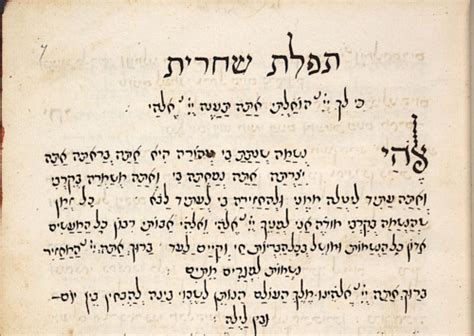 תפלת שחרית
כי לך יי הוחלתי אתה תענה יי אלהי
אלהי נשמה שנתת בי טהורה היא אתה בראתה אתה
יצרתה אתה נפחתה בי ואתה משמרה בקרבי
ואתה עתיד ליטלה ממני ולהחזירה בי לעתיד לבא כל זמן
שהנשמה בקרבי מודה אני יי אלהי ואלהי אבותי רבון כל המעשים
אדון כל הנשמות ומושל בכל הבריות חי וקיים לעד ברוך אתה יי המחזיר
נשמות לפגרים מתים
ברוך אתה יי אלהינו מלך העולם הנותן לשכוי בינה להבחין בין יום
ובין לילה